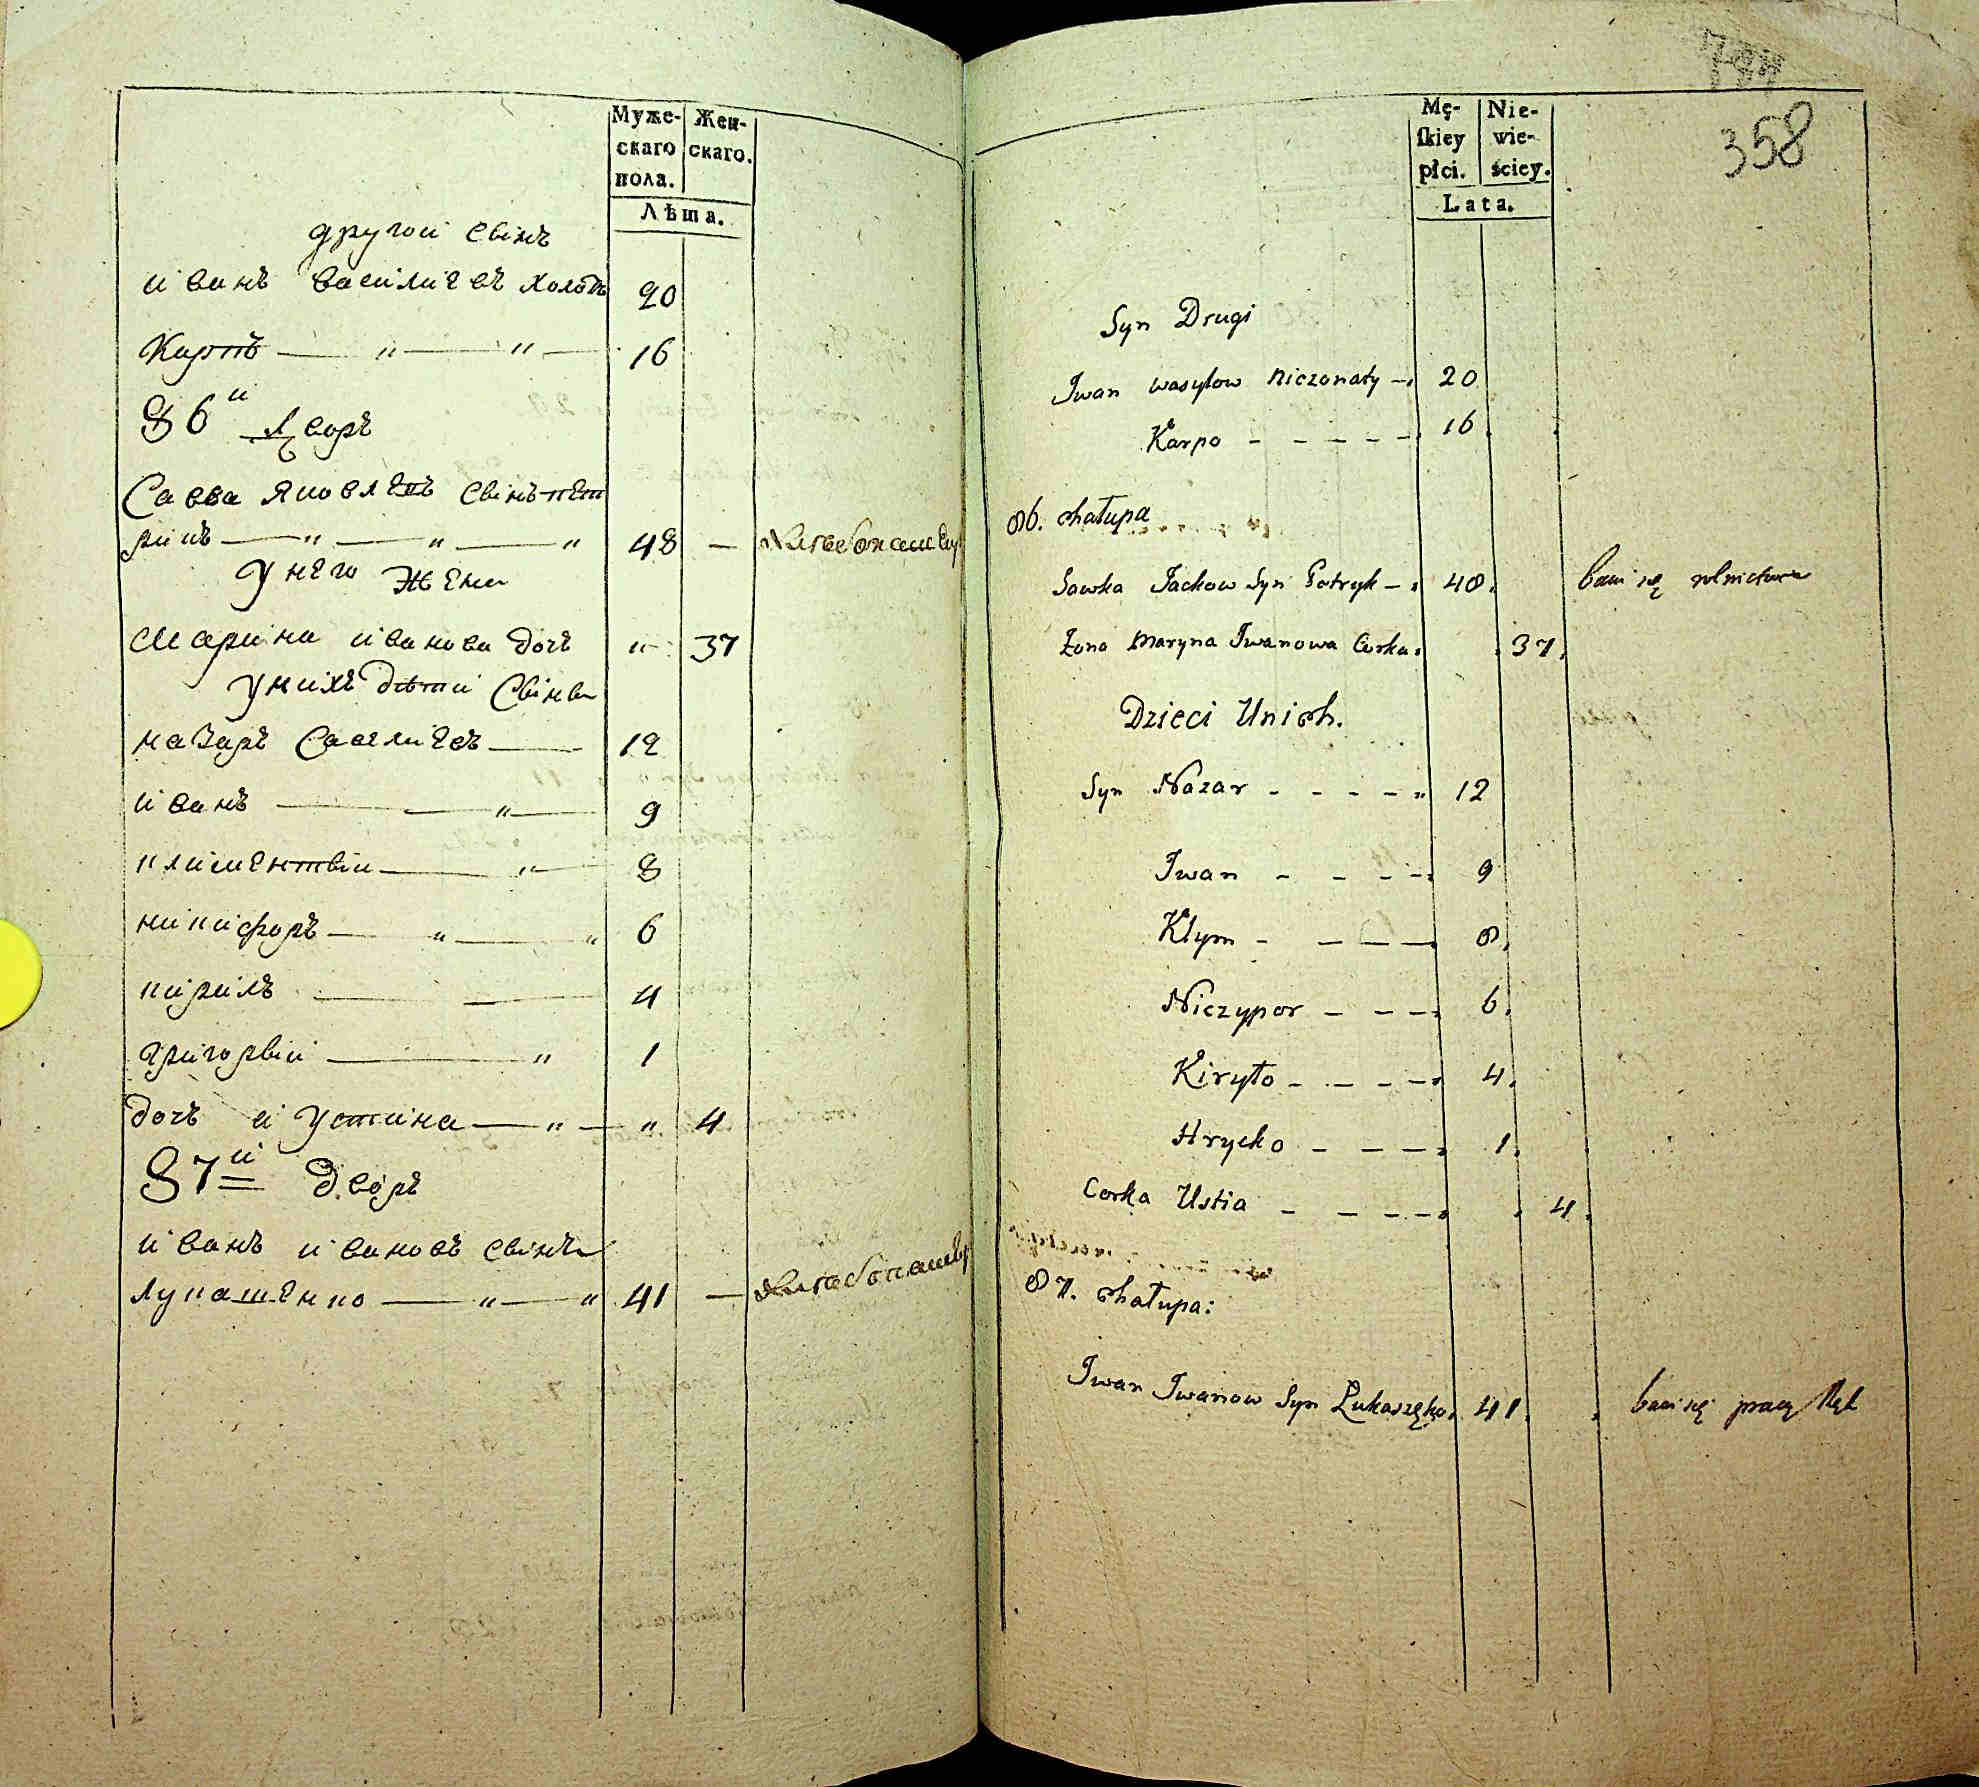 Муже-
скаго
пола.
Жен-
скаго.
Лѣта.
другой свінъ
иванъ василиевъ холостъ 20
Карпъ — „ — „ — 16
86й Дворъ
Савва яковлевъ свінъ пет
рикъ — „ — „ — „ 48 —
У него Жена
Марина иванова дочъ „ 37
У нихъ дѣтіи Свінви
назаръ Савеличевъ — 12
иванъ — — „ — 9
климентвіи — „ — 8
никифоръ — „ — „ 6
кирилъ — — 4
григорвіи — „ 1
дочъ иустина — „ — „ 4
87й Дворъ
иванъ ивановъ свінъ
лукашенко — „ — „ 41 —
794
358
Mę-
skiey
płci.
Nie-
wie-
ściey.
Lata.
Syn Drugi
Jwan wasylow Niezonaty – 20
Karpo - - - - - 16
86. chałupa
Sawka Jackow Syn Patryk – 48. bawi się rolnictwem
Żona Maryna Jwanowa Corka. 37.
Dzieci Unich.
Syn Nazar - - - - 12
Jwan - - - - 9
Kłym - - - - 8.
Niczypor - - - 6.
Kiryło - - - - 4.
Hrycko - - - - 1.
Corka Ustia - - - - 4.
87. chałupa:
Jwan Jwanow Syn Łukaszęko. 41. bawi się pracą Rąk